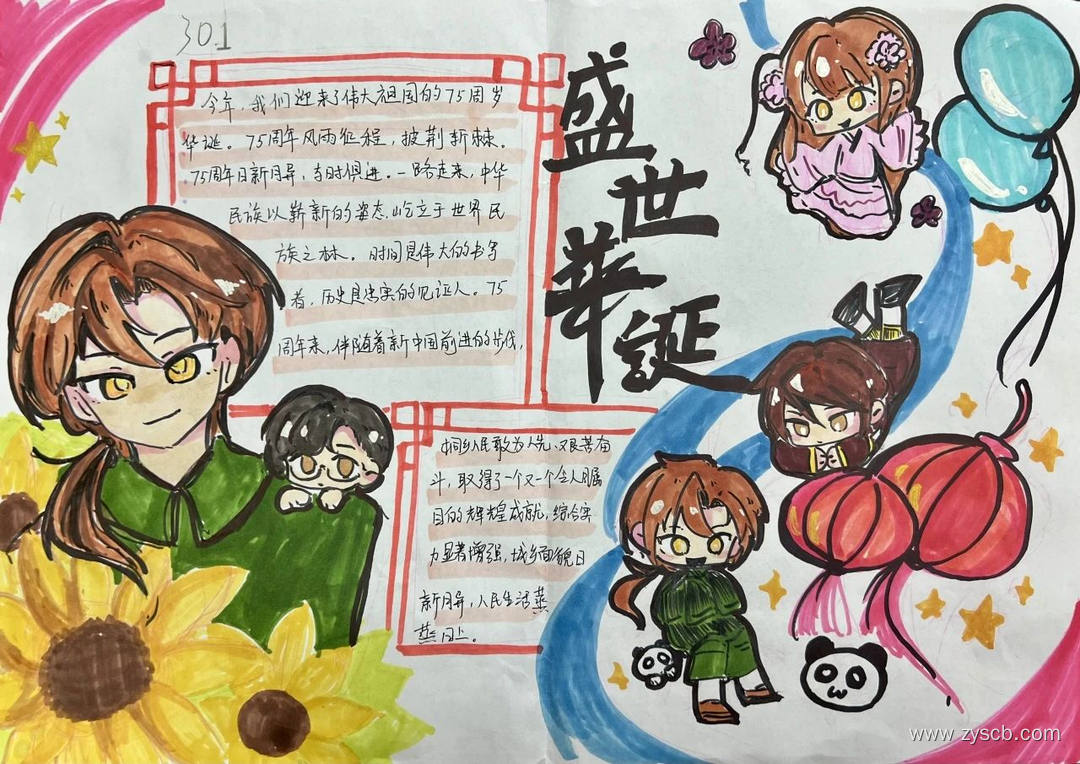 30.1
今年,我们迎来了伟大祖国的75周岁
华诞。75周年风雨征程,披荆斩棘。
75周年日新月异,与时俱进。一路走来,中华
民族以崭新的姿态,屹立于世界民
族之林。时间是伟大的书写
者,历史是忠实的见证人。75
周年来,伴随着新中国前进的步伐,
盛
世
華
誕
中国人民敢为人先、艰苦奋
斗,取得了一个又一个令人瞩
目的辉煌成就,综合实
力显著增强,城乡面貌日
新月异,人民生活蒸
蒸日上。
www.zyscb.com